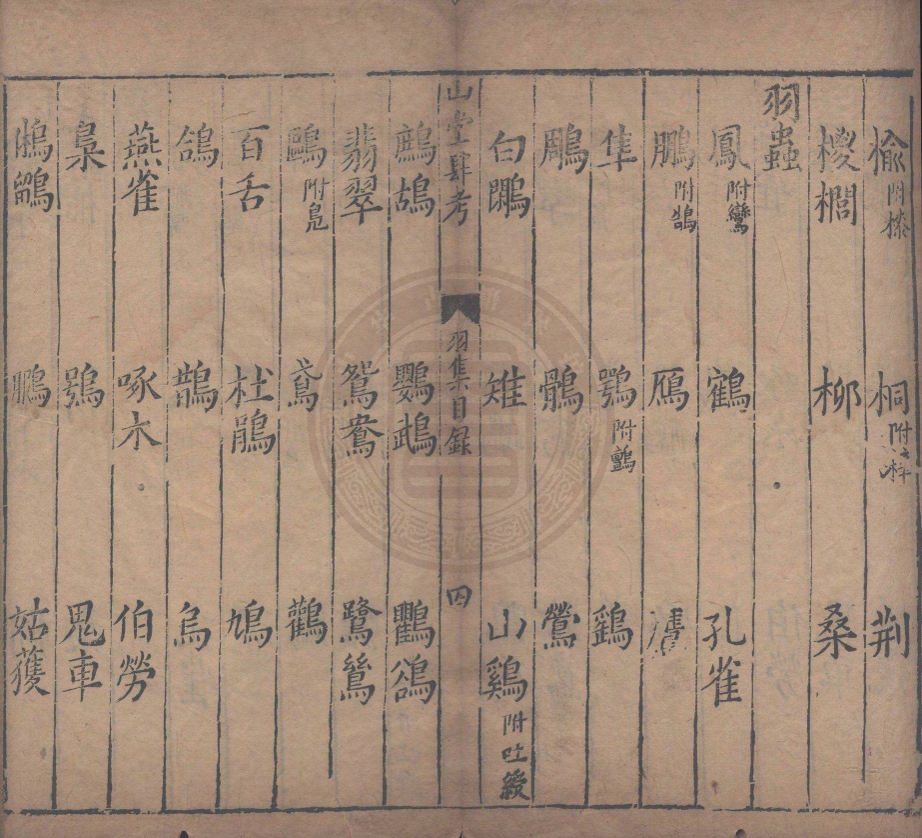 榆附　桐附　荆
椶櫚　柳　桑
羽蟲
鳳附鸞　鶴　孔雀
鵬附鵠　鴈　鷹
隼　鶚附鸇　鷄
鵰　鶻　鶯
白鷳　雉　山鷄附吐綬
山堂肆考　羽集目錄　四
鷓鴣　鸚鵡　鸜鵒
翡翠　鴛鴦　鷺鷥
鷗附鳧　鳶　鸛
百舌　杜鵑　鳩
鴿　鵲　烏
燕雀　啄木　伯勞
梟　鴞　鬼車
鵂鶹　鵩　姑獲